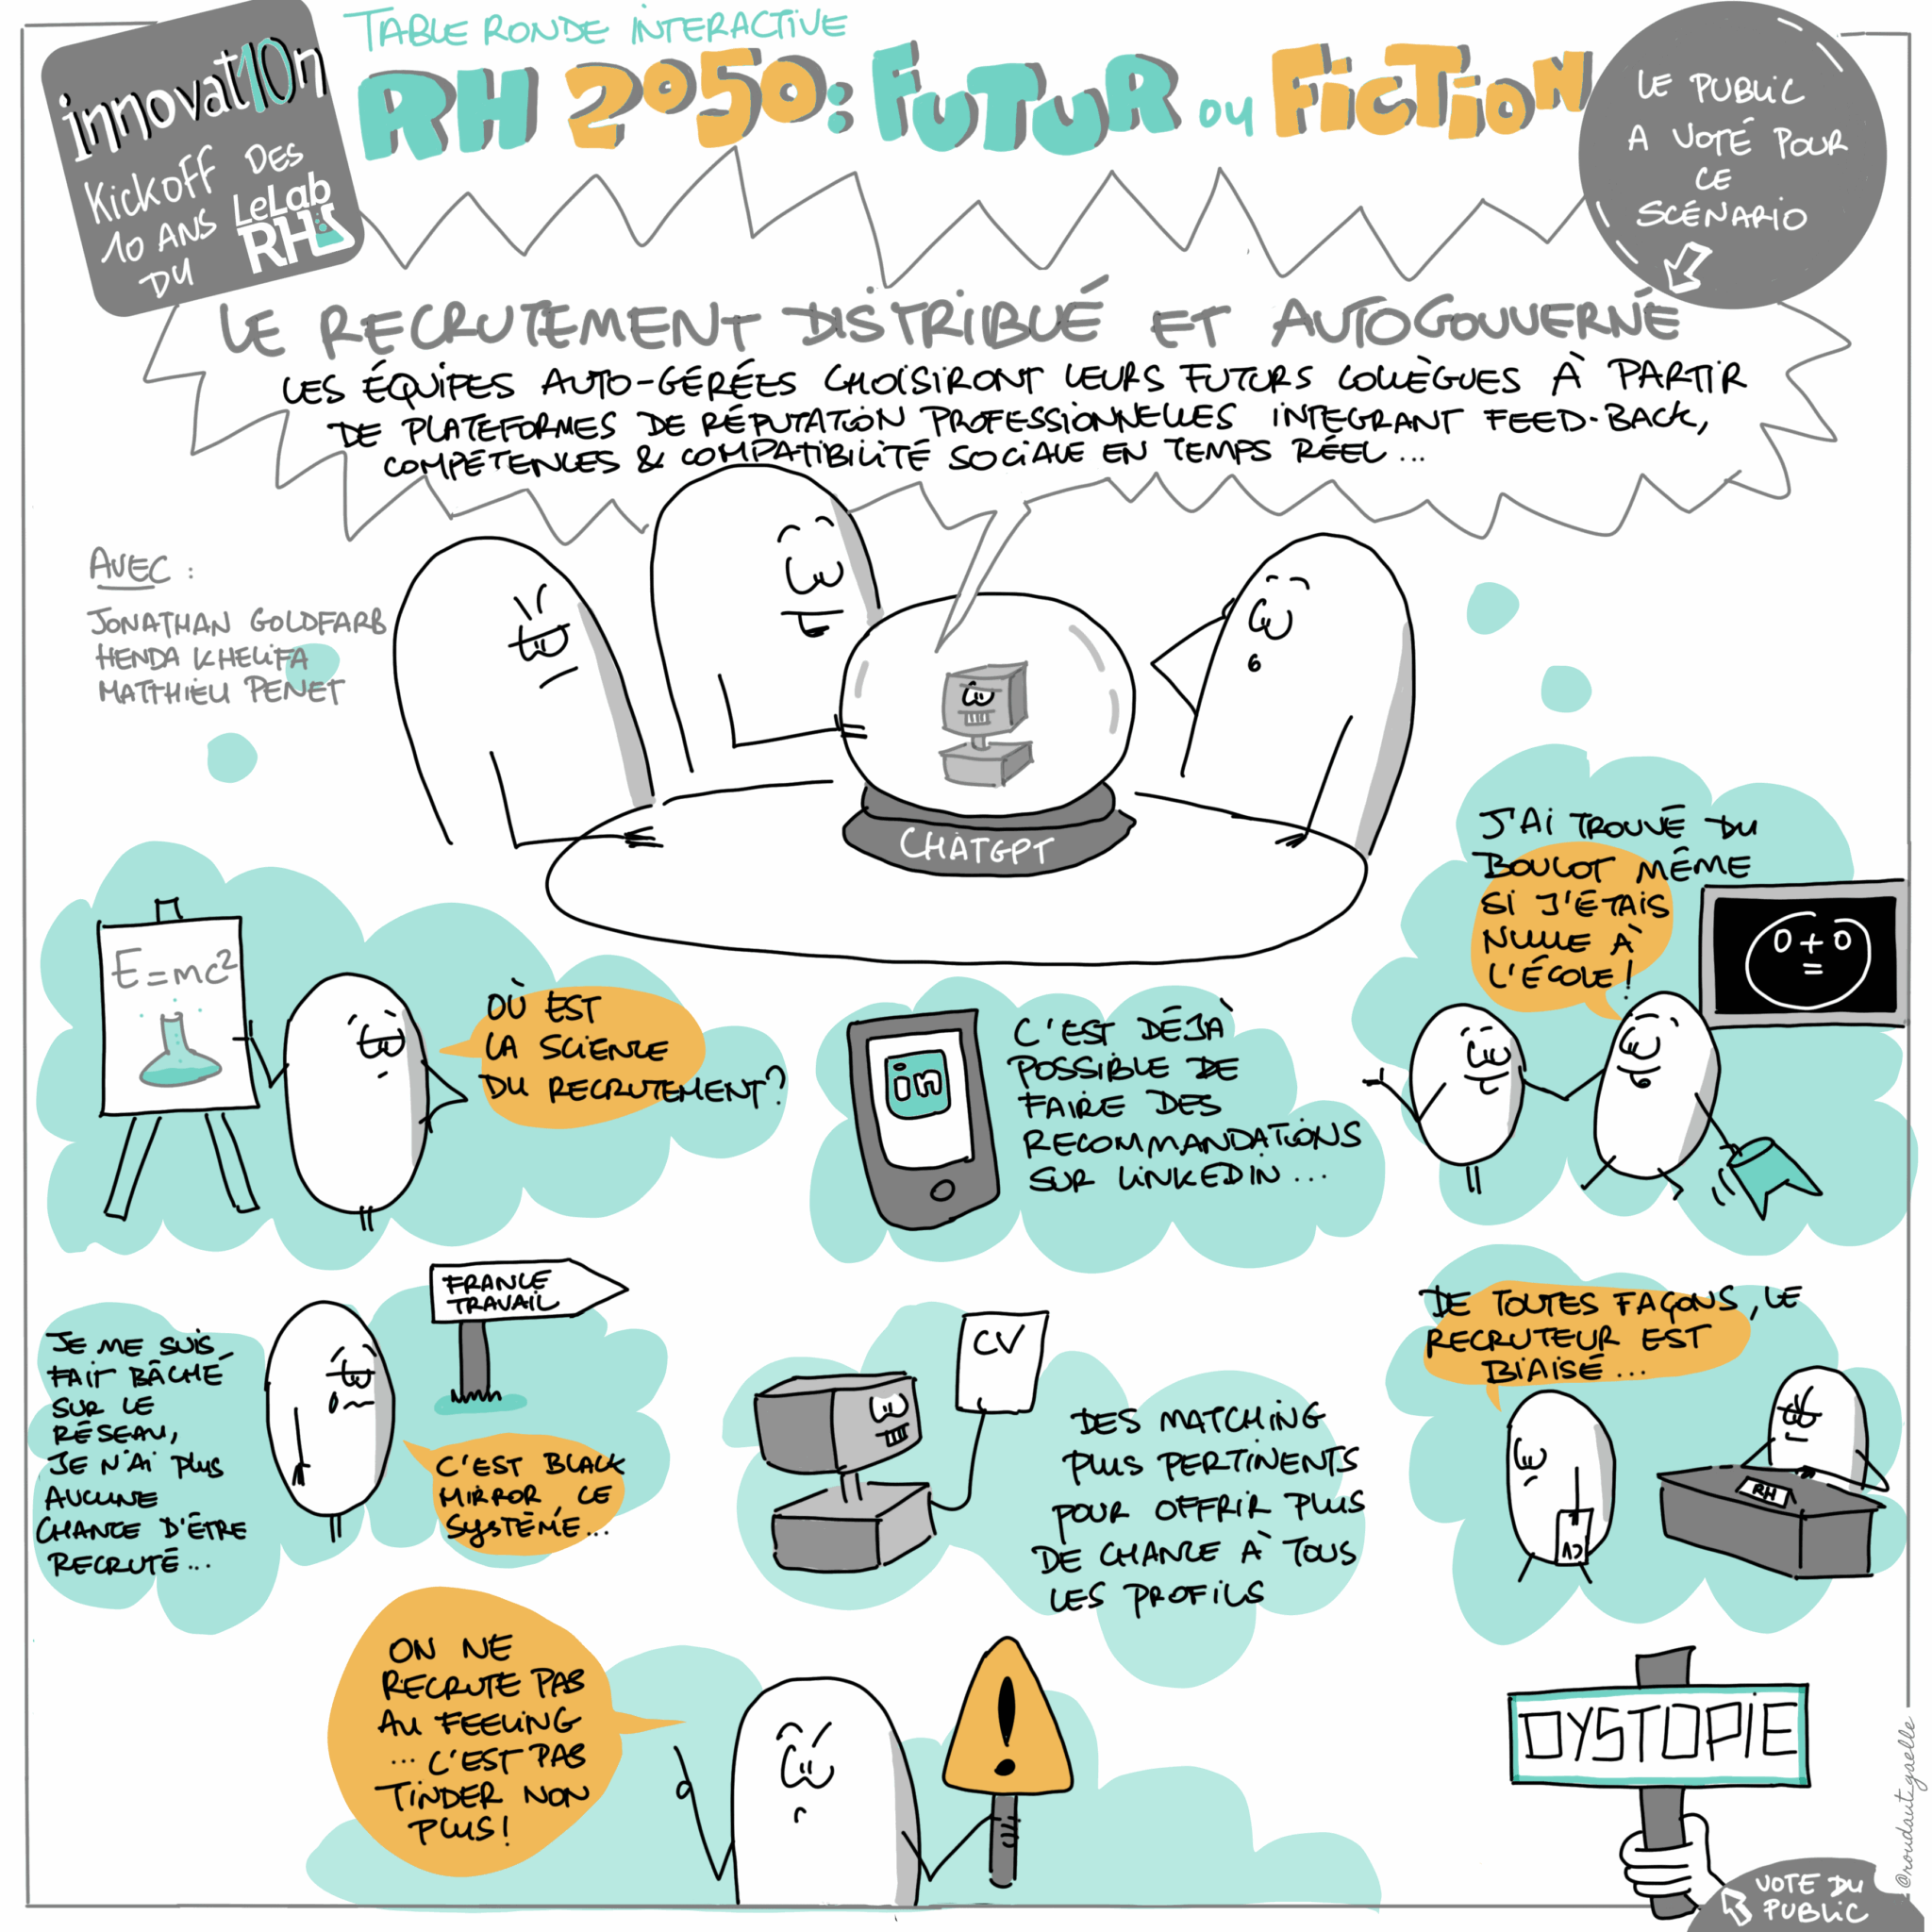 innovat10n
KICKOFF DES
10 ANS DU
LeLab RH
TABLE RONDE INTERACTIVE
RH 2050: FUTUR OU FICTION
LE PUBLIC
A VOTÉ POUR
CE
SCÉNARIO
LE RECRUTEMENT DISTRIBUÉ ET AUTOGOUVERNÉ
LES ÉQUIPES AUTO-GÉRÉES CHOISIRONT LEURS FUTURS COLLÈGUES À PARTIR
DE PLATEFORMES DE RÉPUTATION PROFESSIONNELLES INTEGRANT FEED-BACK,
COMPÉTENCES & COMPATIBILITÉ SOCIALE EN TEMPS RÉEL ...
AVEC :
JONATHAN GOLDFARB
HENDA KHELIFA
MATTHIEU PENET
CHATGPT
E=mc²
OÙ EST
LA SCIENCE
DU RECRUTEMENT?
in
C'EST DÉJÀ
POSSIBLE DE
FAIRE DES
RECOMMANDATIONS
SUR LINKEDIN ...
J'AI TROUVÉ DU
BOULOT MÊME
SI J'ÉTAIS
NULLE À
L'ÉCOLE !
0+0
=
JE ME SUIS
FAIT BÂCHÉ
SUR LE
RÉSEAU,
JE N'AI PLUS
AUCUNE
CHANCE D'ÊTRE
RECRUTÉ...
FRANCE
TRAVAIL
C'EST BLACK
MIRROR, CE
SYSTÈME...
CV
DES MATCHING
PLUS PERTINENTS
POUR OFFRIR PLUS
DE CHANCE À TOUS
LES PROFILS
DE TOUTES FAÇONS, LE
RECRUTEUR EST
BIAISÉ ...
CV
RH
ON NE
RECRUTE PAS
AU FEELING
... C'EST PAS
TINDER NON
PLUS!
!
DYSTOPIE
VOTE DU
PUBLIC
@roudautgaelle